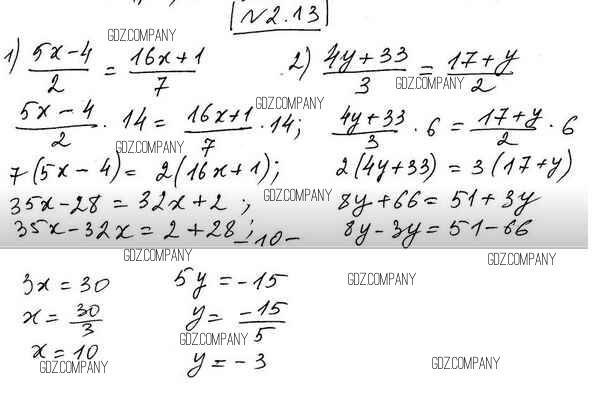 №2.13
GDZ.COMPANY
1) (5x-4)/2 = (16x+1)/7
2) (4y+33)/3 = (17+y)/2
GDZ.COMPANY
GDZ.COMPANY
(5x-4)/2 · 14 = (16x+1)/7 · 14;
(4y+33)/3 · 6 = (17+y)/2 · 6
GDZ.COMPANY
7(5x-4) = 2(16x+1);
2(4y+33) = 3(17+y)
GDZ.COMPANY
35x-28 = 32x+2;
8y+66 = 51+3y
35x-32x = 2+28;
-10-
8y-3y = 51-66
GDZ.COMPANY
GDZ.COMPANY
3x = 30
5y = -15
GDZ.COMPANY
x = 30/3
y = -15/5
GDZ.COMPANY
x = 10
y = -3
GDZ.COMPANY
GDZ.COMPANY